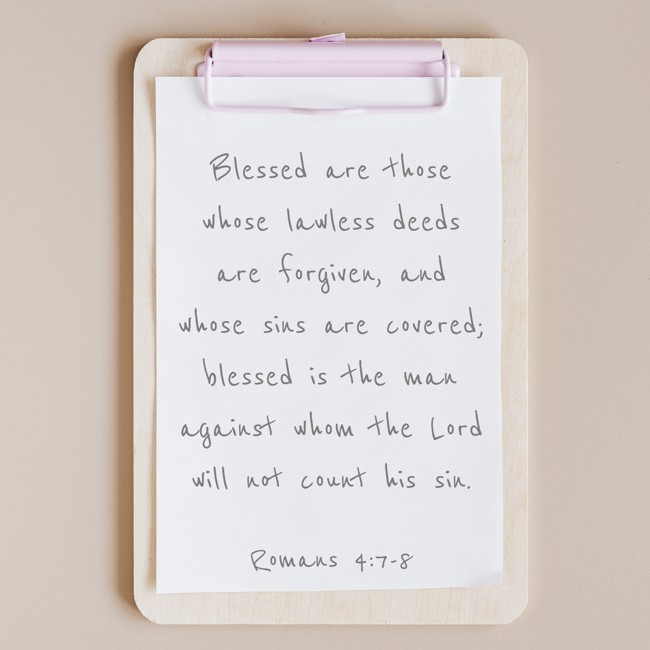 Blessed are those
whose lawless deeds
are forgiven, and
whose sins are covered;
blessed is the man
against whom the Lord
will not count his sin.
Romans 4:7-8